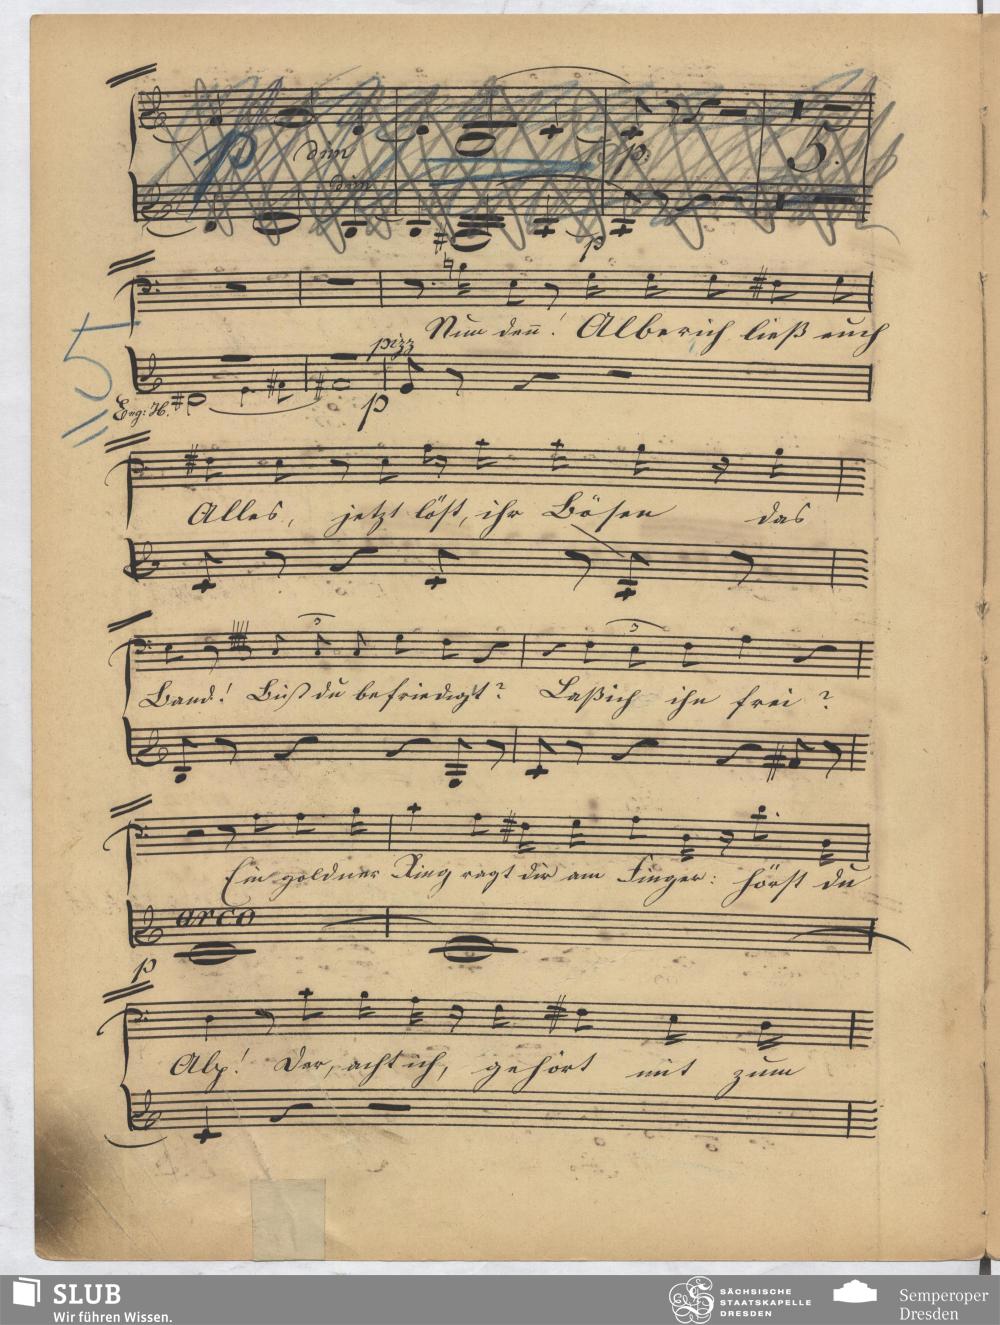 p dim p: 5.
dim p
Nun den̄! Alberich ließ euch
pizz
Eng: H. p
Alles, jetzt löst, ihr Bösen das
3 3
Band! Bist du befriedigt? Laß ich ihn frei?
Ein goldner Ring ragt dir am Finger: hörst du
arco
p
Alp! Der, acht ich, gehört mit zum
SLUB
Wir führen Wissen.
SÄCHSISCHE
STAATSKAPELLE
DRESDEN
Semperoper
Dresden